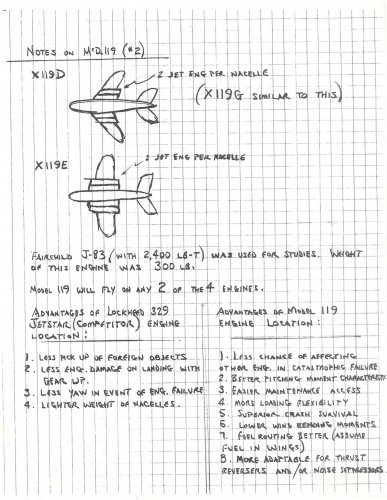 NOTES ON McD.119 (#2)
X119D
2 JET ENG PER NACELLE
(X119G SIMILAR TO THIS)
X119E
2 JET ENG PER NACELLE
FAIRCHILD J-83 (WITH 2,400 LB-T) WAS USED FOR STUDIES. WEIGHT
OF THIS ENGINE WAS 300 LBS.
MODEL 119 WILL FLY ON ANY 2 OF THE 4 ENGINES.
ADVANTAGES OF LOCKHEED 329
JETSTAR (COMPETITOR) ENGINE
LOCATION:
1. LESS PICK UP OF FOREIGN OBJECTS
2. LESS ENG. DAMAGE ON LANDING WITH
GEAR UP.
3. LESS YAW IN EVENT OF ENG. FAILURE
4. LIGHTER WEIGHT OF NACELLES.
ADVANTAGES OF MODEL 119
ENGINE LOCATION:
1. LESS CHANCE OF AFFECTING
OTHER ENG. IN CATASTROPHIC FAILURE
2. BETTER PITCHING MOMENT CHARACTERISTIC
3. EASIER MAINTENANCE ACCESS
4. MORE LOADING FLEXIBILITY
5. SUPERIOR CRASH SURVIVAL
6. LOWER WING BENDING MOMENTS
7. FUEL ROUTING BETTER (ASSUME
FUEL IN WINGS)
8. MORE ADAPTABLE FOR THRUST
REVERSERS AND/OR NOISE SUPPRESSORS.